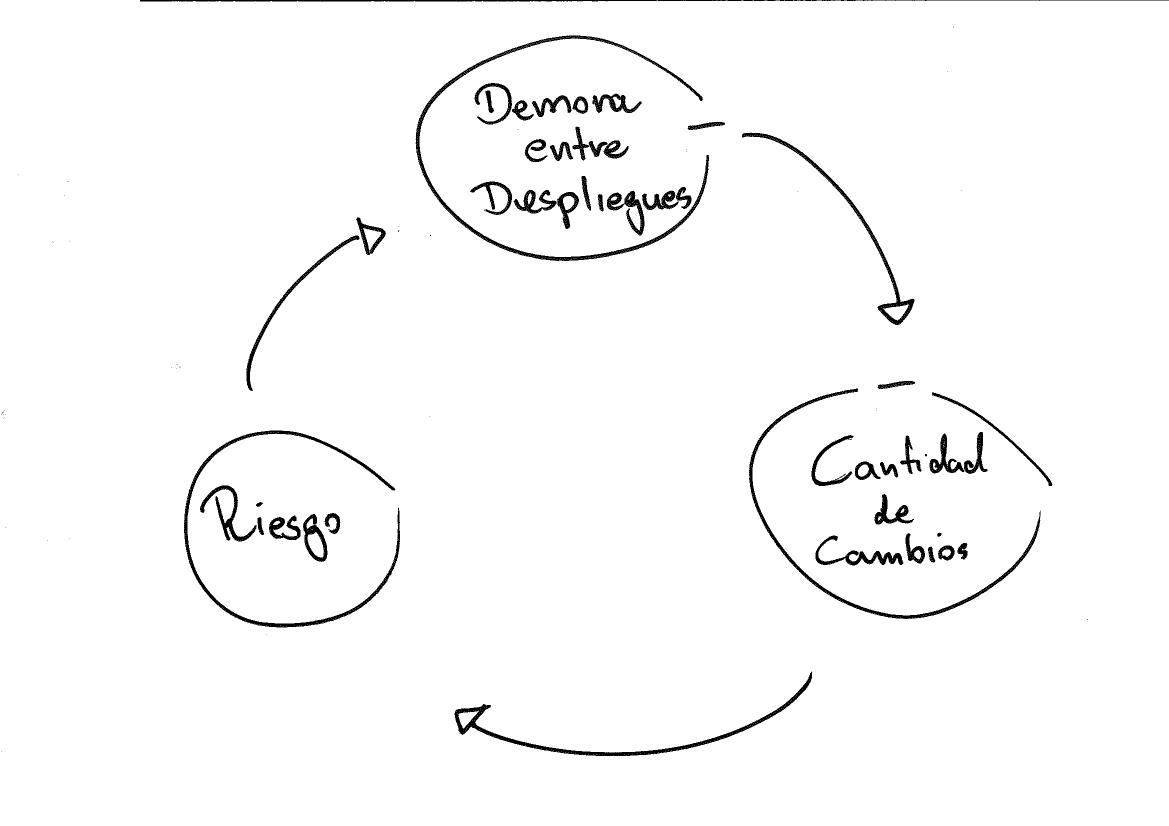 Demora
entre
Despliegues
-
-
Cantidad
de
Cambios
Riesgo